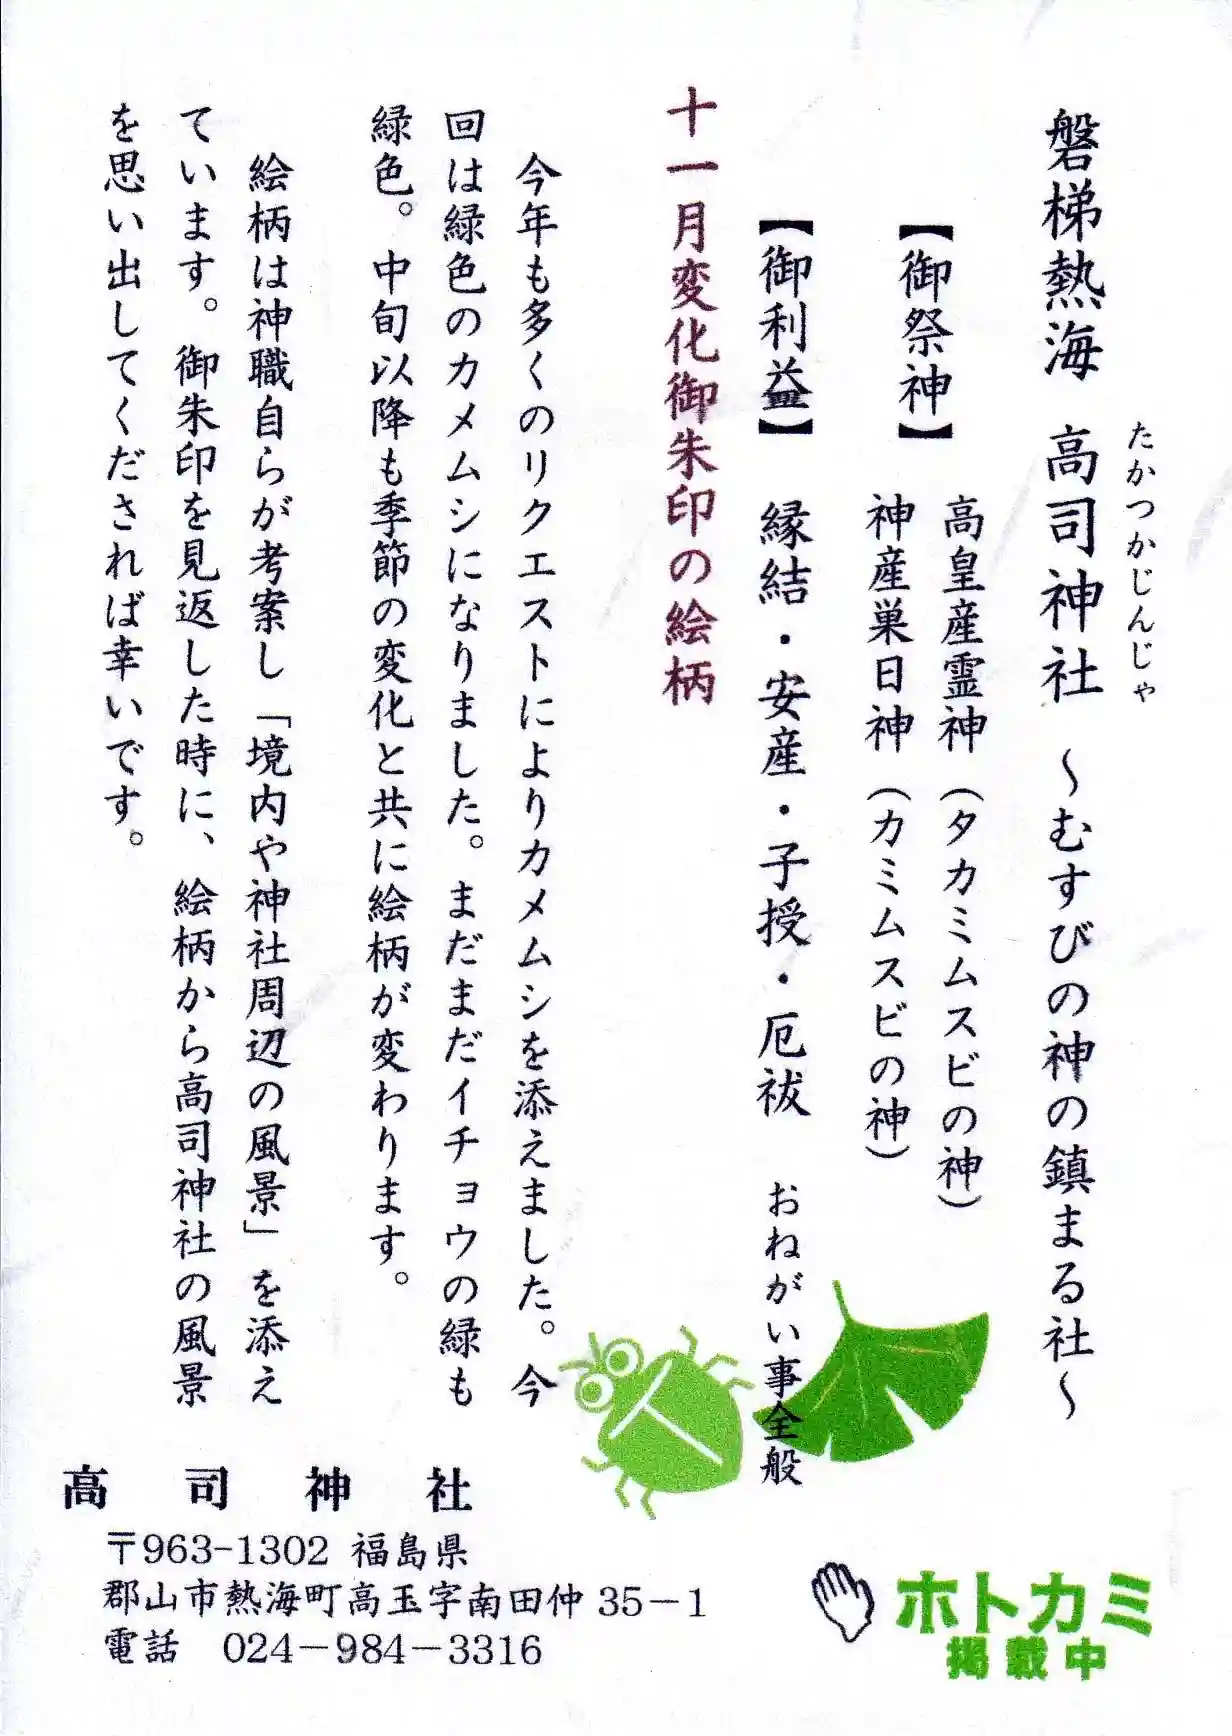 たかつかじんじゃ
磐梯熱海 高司神社 ～むすびの神の鎮まる社～
【御祭神】 高皇産霊神(タカミムスビの神)
神産巣日神(カミムスビの神)
【御利益】 縁結・安産・子授・厄祓 おねがい事全般
十一月変化御朱印の絵柄
今年も多くのリクエストによりカメムシを添えました。今
回は緑色のカメムシになりました。まだまだイチョウの緑も
緑色。中旬以降も季節の変化と共に絵柄が変わります。
絵柄は神職自らが考案し「境内や神社周辺の風景」を添え
ています。御朱印を見返した時に、絵柄から高司神社の風景
を思い出してくだされば幸いです。
高司神社
〒963-1302 福島県
郡山市熱海町高玉字南田仲35－1
電話 024－984－3316
ホトカミ
掲載中